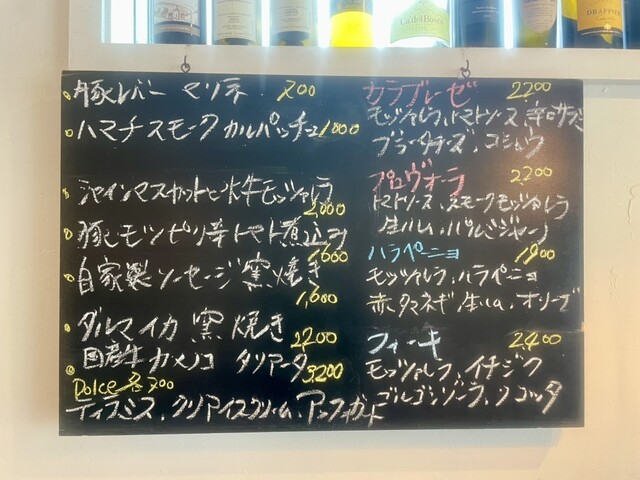 Ca'del Bosco
DRAPPIER
豚レバー マリネ 700
ハマチスモーク カルパッチョ 1000
シャインマスカットと水牛モッツァレラ
2,000
豚モツピリ辛トマト煮込み
1600
自家製ソーセージ窯焼き
1,600
ダルマイカ 窯焼き 2200
国産牛カメノコ タリアータ 3,200
Dolce 各700
ティラミス、クリアイスクリーム、アフォガード
カラブレーゼ 2200
モッツァレラ、トマトソース、辛口サラミ
ブラータチーズ、コショウ
プロヴォーラ 2200
トマトソース、スモークモッツァレラ
生ハム、パルミジャーノ
ハラペーニョ 1900
モッツァレラ、ハラペーニョ
赤タマネギ、生ハム、オリーブ
フィーキ 2400
モッツァレラ、イチジク
ゴルゴンゾーラ、リコッタ